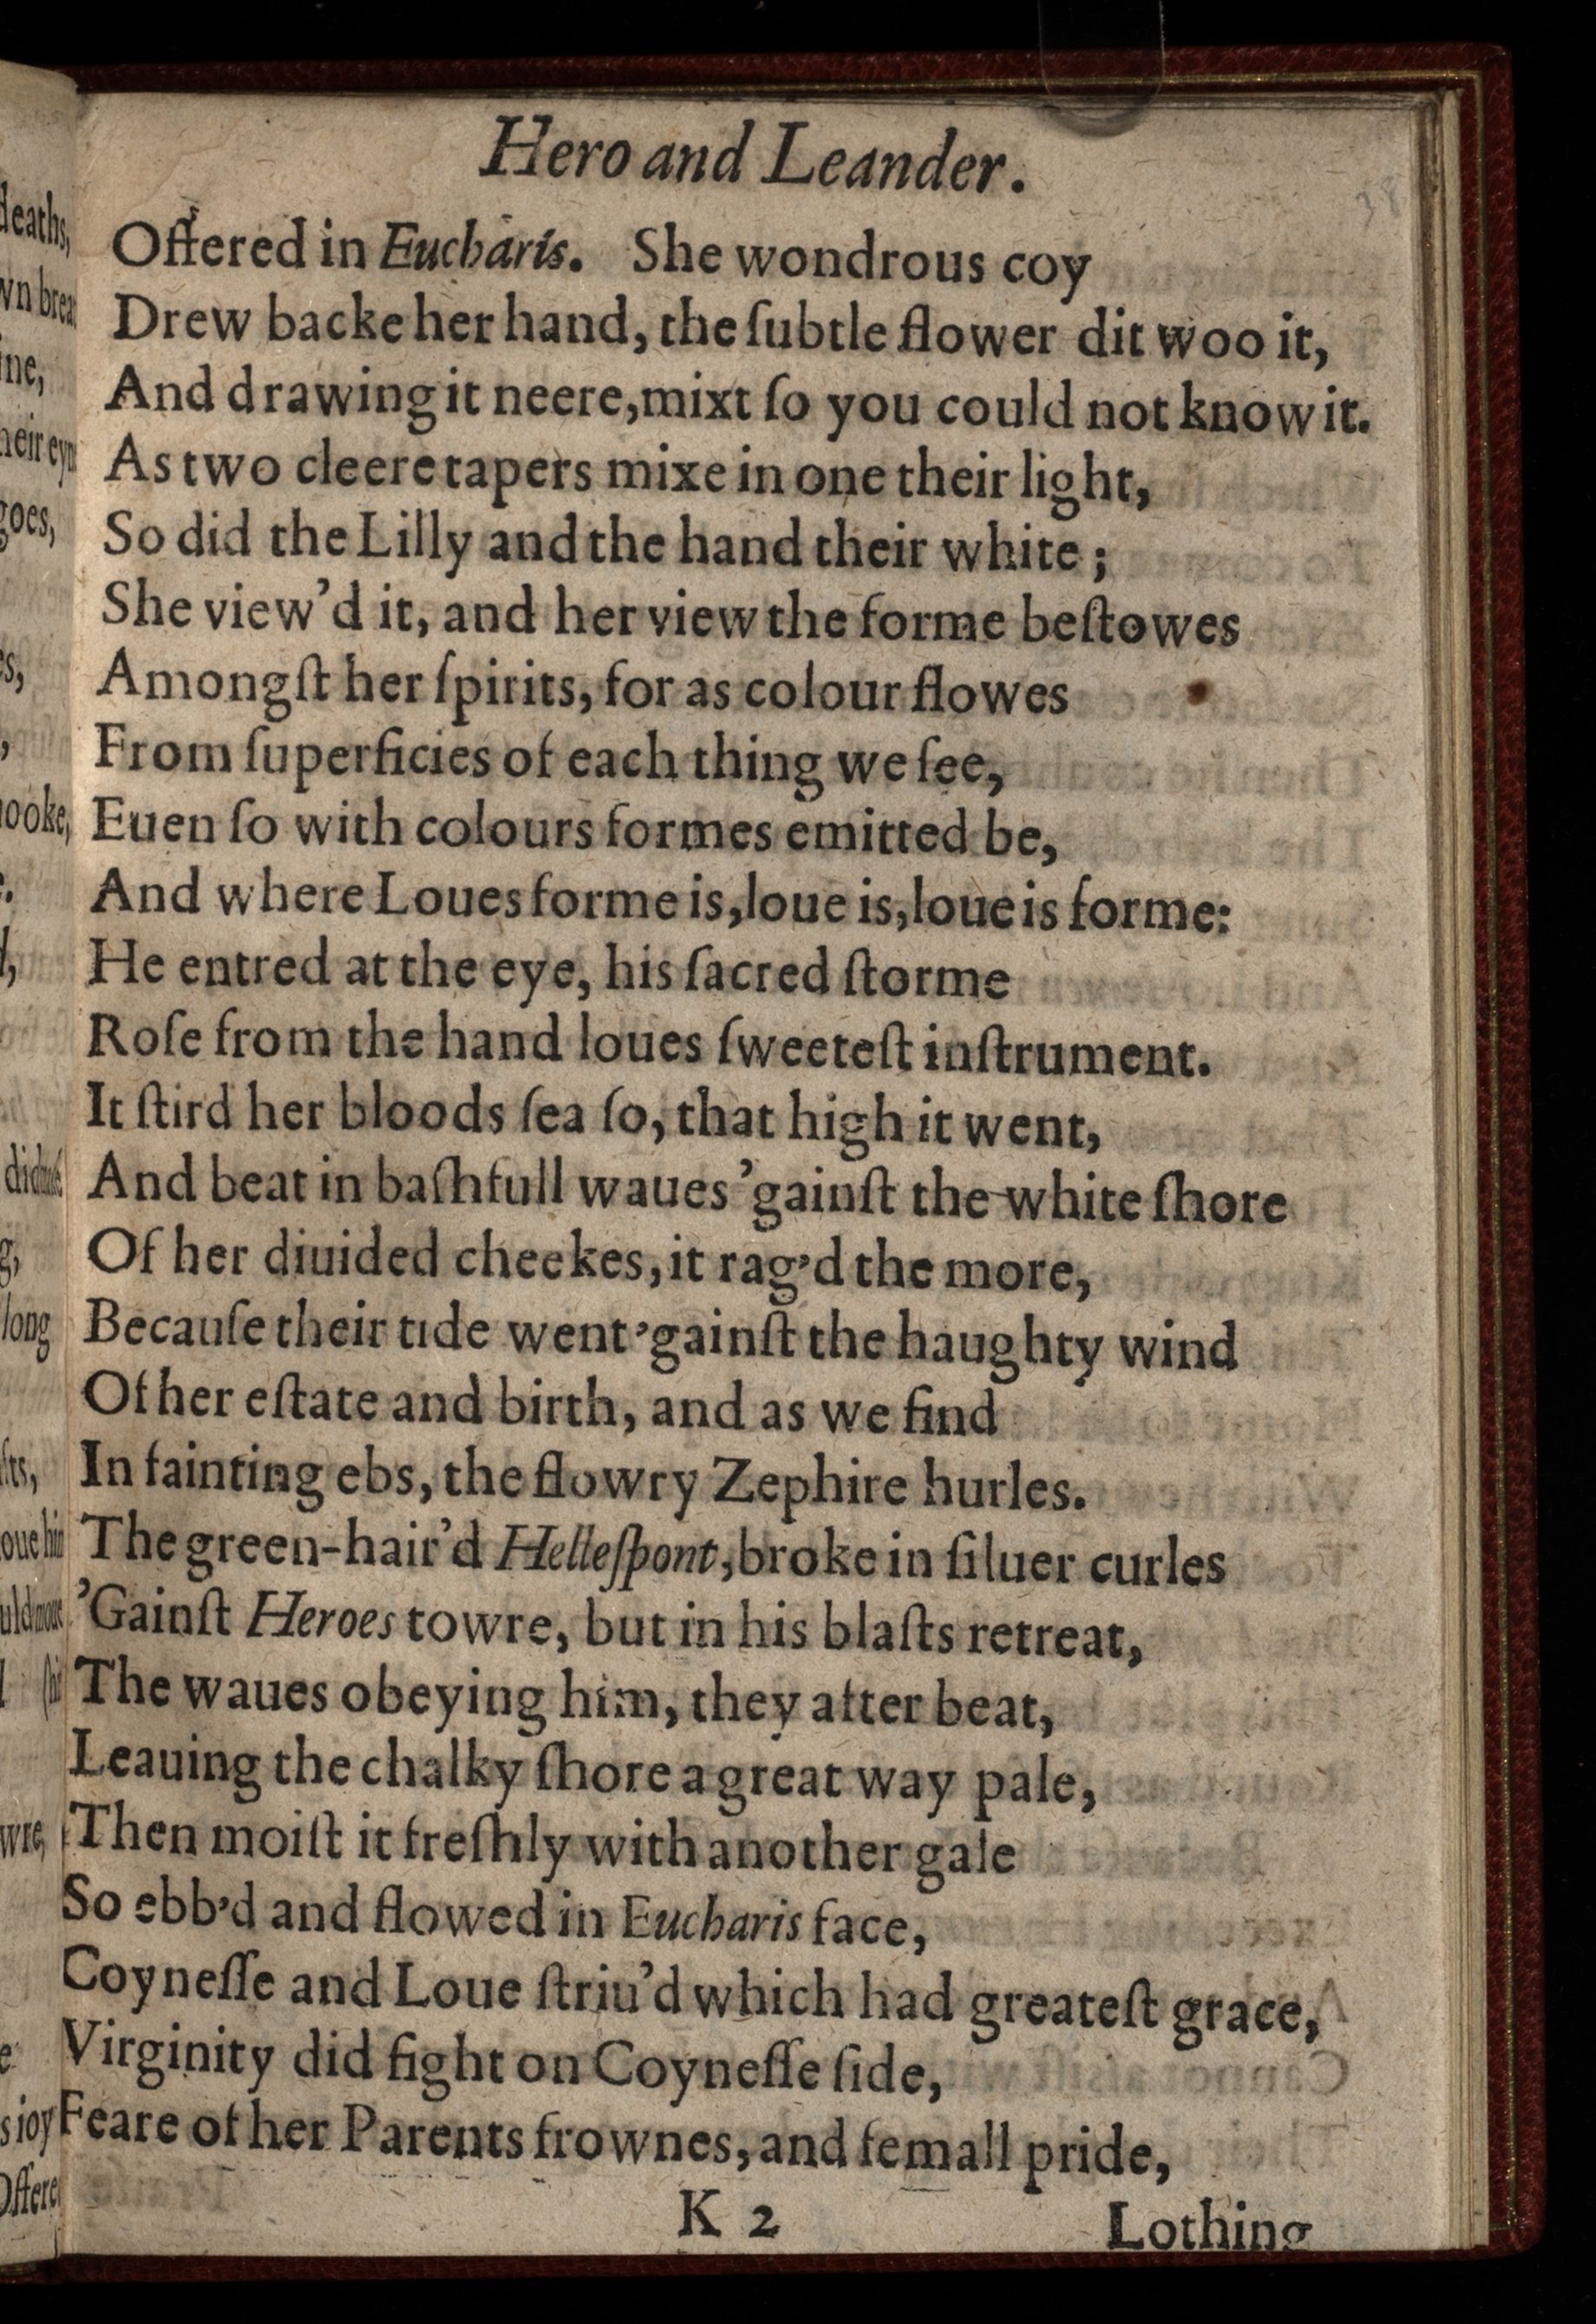 Hero and Leander.
Offered in Eucharis. She wondrous coy
Drew backe her hand, the ſubtle flower dit woo it,
And drawing it neere,mixt ſo you could not know it.
As two cleere tapers mixe in one their light,
So did the Lilly and the hand their white;
She view'd it, and her view the forme beſtowes
Amongſt her ſpirits, for as colour flowes
From ſuperficies of each thing we ſee,
Euen ſo with colours formes emitted be,
And where Loues forme is,loue is,loue is forme:
He entred at the eye, his ſacred ſtorme
Roſe from the hand loues ſweeteſt inſtrument.
It ſtird her bloods ſea ſo, that high it went,
And beat in baſhfull waues 'gainſt the white ſhore
Of her diuided cheekes, it rag'd the more,
Becauſe their tide went 'gainſt the haughty wind
Of her eſtate and birth, and as we find
In fainting ebs, the flowry Zephire hurles.
The green-hair'd Helleſpont,broke in ſiluer curles
'Gainſt Heroes towre, but in his blaſts retreat,
The waues obeying him, they after beat,
Leauing the chalky ſhore a great way pale,
Then moiſt it freſhly with another gale
So ebb'd and flowed in Eucharis face,
Coyneſſe and Loue ſtriu'd which had greateſt grace,
Virginity did fight on Coyneſſe ſide,
Feare of her Parents frownes, and femall pride,
K 2 Lothing